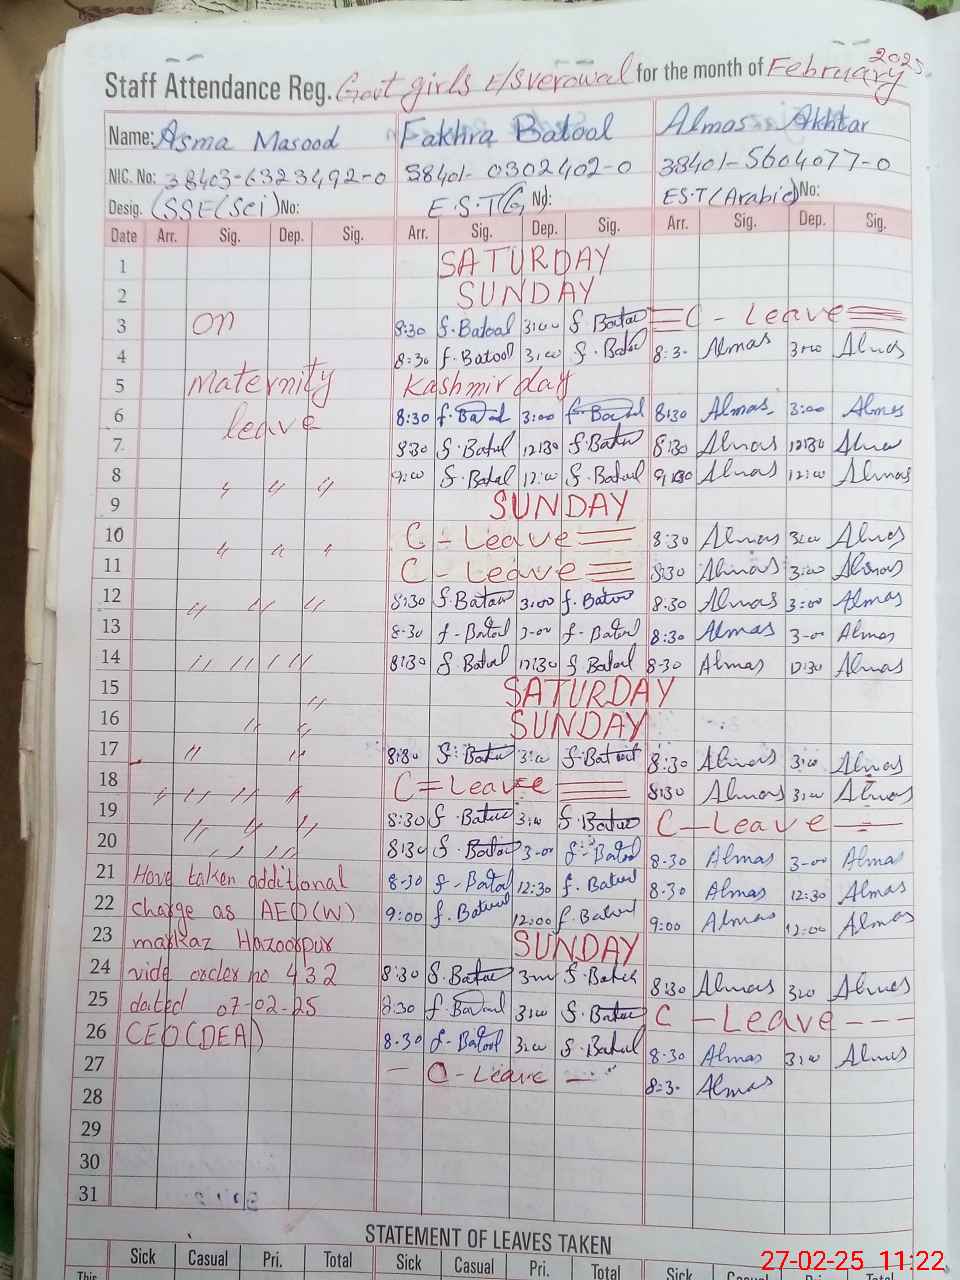 Staff Attendance Reg. Govt girls E/S verowal for the month of February 2025.
Name: Asma Masood Fakhra Batool Almas Akhtar
NIC. No: 38403-6323492-0 38401-0302402-0 38401-5604077-0
Desig. (SSE(Sci) No: E.S.T(G) No: ES.T(Arabic) No:
Date Arr. Sig. Dep. Sig. Arr. Sig. Dep. Sig. Arr. Sig. Dep. Sig.
1 SATURDAY
2 SUNDAY
3 on 8:30 f.Batool 3:00 f Batool C - Leave
4 8:30 f.Batool 3:00 f.Batool 8:3- Almas 3:00 Almas
5 Maternity Kashmir day
6 leave 8:30 f.Batool 3:00 f.Batool 8:30 Almas 3:00 Almas
7 8:30 f.Batool 12:30 f.Batool 8:30 Almas 12:30 Almas
8 " " " 9:00 f.Batool 12:00 f.Batool Almas 12:00 Almas
9 SUNDAY
10 " " " C - Leave 8:30 Almas 3:00 Almas
11 C - Leave 8:30 Almas 3:00 Almas
12 " " " 8:30 f.Batool 3:00 f.Batool 8:30 Almas 3:00 Almas
13 8-30 f-Batool 3-00 f-Batool 8:30 Almas 3-00 Almas
14 " " " " 8:30 f.Batool 12:30 f Batool 8-30 Almas 12:30 Almas
15 " SATURDAY
16 " " SUNDAY
17 " " 8:30 f.Batool 3:00 f.Batool 8:30 Almas 3:00 Almas
18 " " " " C = Leave 8:30 Almas 3:00 Almas
19 " " " 8:30 f.Batool 3:00 f.Batool C - Leave
20 " " " 8:30 f.Batool 3-00 f-Batool 8-30 Almas 3-00 Almas
21 Have taken additional 8-30 f-Batool 12:30 f.Batool 8-30 Almas 12:30 Almas
22 charge as AEO(W) 9:00 f.Batool 12:00 f.Batool 9:00 Almas 12:00 Almas
23 markaz Hazoorpur SUNDAY
24 vide order no 432 8:30 f.Batool 3:00 f.Batool 8:30 Almas 3:00 Almas
25 dated 07-02-25 8:30 f.Batool 3:00 f.Batool C - Leave - - -
26 CEO(DEA) 8-30 f-Batool 3:00 f.Batool 8-30 Almas 3:00 Almas
27 - C - Leave - 8:3- Almas
28
29
30
31
STATEMENT OF LEAVES TAKEN
Sick Casual Pri. Total Sick Casual Pri. Total Sick Casual Pri. Total
This
27-02-25 11:22